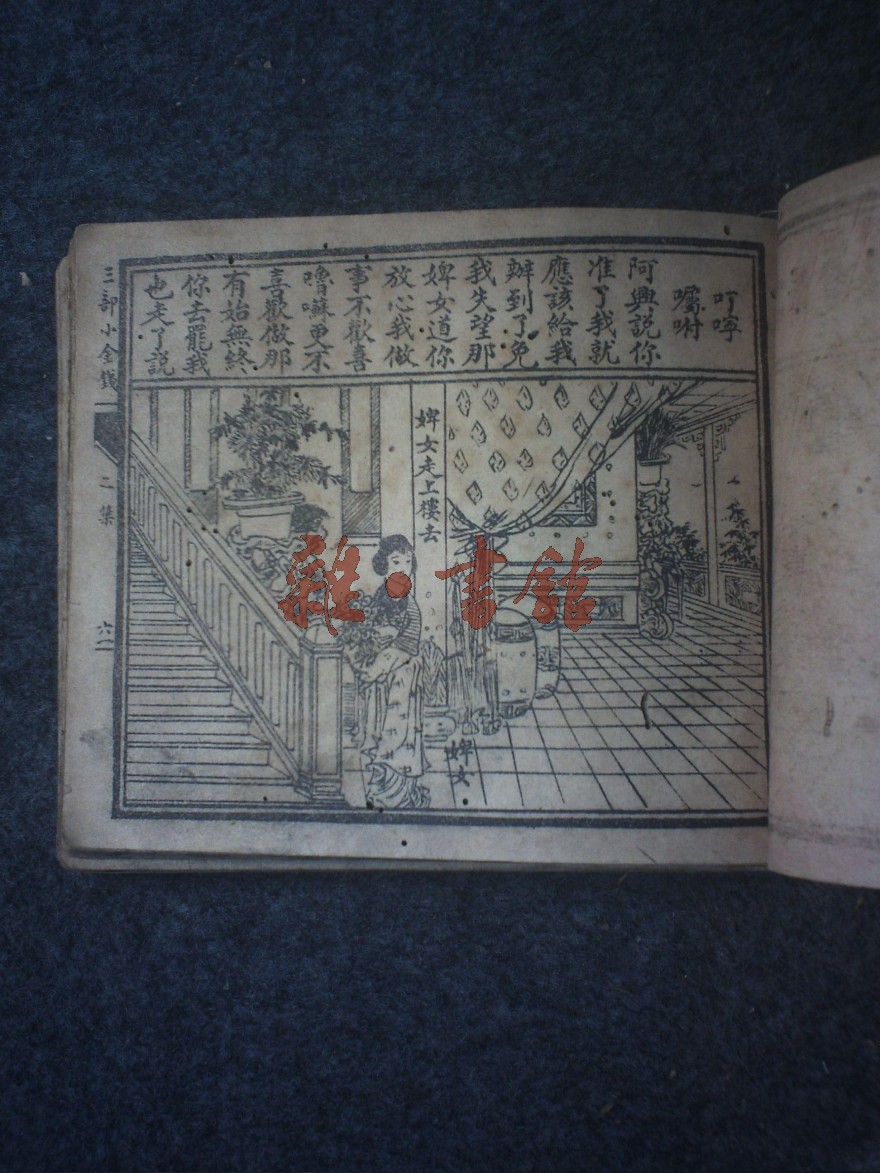 叮嚀
囑咐
阿興説你
准了我就
應該給我
辦到了免
我失望那
婢女道你
放心我做
事不歡喜
嚕囌更不
喜歡做那
有始無終
你去罷我
也走了説
婢女走上樓去
婢女
三部小金錢
二集
六一
雜·書館